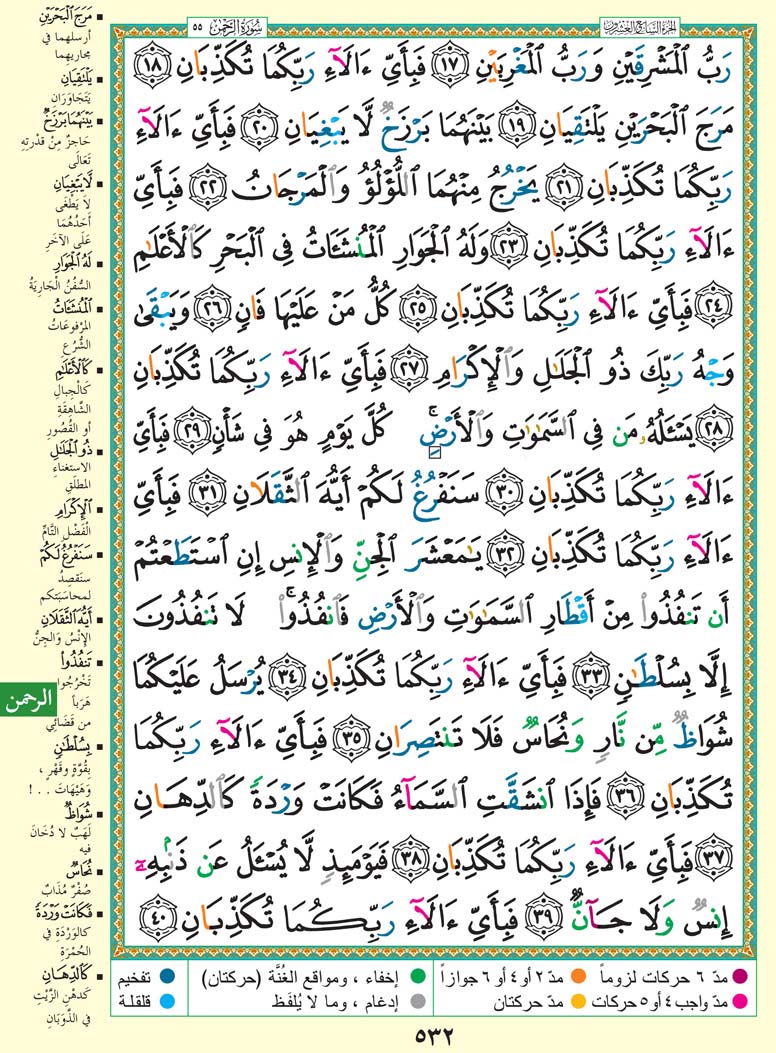 الجزء السابع والعشرون
سورة الرحمن ٥٥
رَبُّ ٱلْمَشْرِقَيْنِ وَرَبُّ ٱلْمَغْرِبَيْنِ ١٧ فَبِأَىِّ ءَالَآءِ رَبِّكُمَا تُكَذِّبَانِ ١٨
مَرَجَ ٱلْبَحْرَيْنِ يَلْتَقِيَانِ ١٩ بَيْنَهُمَا بَرْزَخٌ لَّا يَبْغِيَانِ ٢٠ فَبِأَىِّ ءَالَآءِ
رَبِّكُمَا تُكَذِّبَانِ ٢١ يَخْرُجُ مِنْهُمَا ٱللُّؤْلُؤُ وَٱلْمَرْجَانُ ٢٢ فَبِأَىِّ
ءَالَآءِ رَبِّكُمَا تُكَذِّبَانِ ٢٣ وَلَهُ ٱلْجَوَارِ ٱلْمُنشَـَٔاتُ فِى ٱلْبَحْرِ كَٱلْأَعْلَٰمِ
٢٤ فَبِأَىِّ ءَالَآءِ رَبِّكُمَا تُكَذِّبَانِ ٢٥ كُلُّ مَنْ عَلَيْهَا فَانٍ ٢٦ وَيَبْقَىٰ
وَجْهُ رَبِّكَ ذُو ٱلْجَلَٰلِ وَٱلْإِكْرَامِ ٢٧ فَبِأَىِّ ءَالَآءِ رَبِّكُمَا تُكَذِّبَانِ
٢٨ يَسْـَٔلُهُۥ مَن فِى ٱلسَّمَٰوَٰتِ وَٱلْأَرْضِ ۚ كُلَّ يَوْمٍ هُوَ فِى شَأْنٍ ٢٩ فَبِأَىِّ
ءَالَآءِ رَبِّكُمَا تُكَذِّبَانِ ٣٠ سَنَفْرُغُ لَكُمْ أَيُّهَ ٱلثَّقَلَانِ ٣١ فَبِأَىِّ
ءَالَآءِ رَبِّكُمَا تُكَذِّبَانِ ٣٢ يَٰمَعْشَرَ ٱلْجِنِّ وَٱلْإِنسِ إِنِ ٱسْتَطَعْتُمْ
أَن تَنفُذُوا۟ مِنْ أَقْطَارِ ٱلسَّمَٰوَٰتِ وَٱلْأَرْضِ فَٱنفُذُوا۟ ۚ لَا تَنفُذُونَ
إِلَّا بِسُلْطَٰنٍ ٣٣ فَبِأَىِّ ءَالَآءِ رَبِّكُمَا تُكَذِّبَانِ ٣٤ يُرْسَلُ عَلَيْكُمَا
شُوَاظٌ مِّن نَّارٍ وَنُحَاسٌ فَلَا تَنتَصِرَانِ ٣٥ فَبِأَىِّ ءَالَآءِ رَبِّكُمَا
تُكَذِّبَانِ ٣٦ فَإِذَا ٱنشَقَّتِ ٱلسَّمَآءُ فَكَانَتْ وَرْدَةً كَٱلدِّهَانِ
٣٧ فَبِأَىِّ ءَالَآءِ رَبِّكُمَا تُكَذِّبَانِ ٣٨ فَيَوْمَئِذٍ لَّا يُسْـَٔلُ عَن ذَنۢبِهِۦٓ
إِنسٌ وَلَا جَآنٌّ ٣٩ فَبِأَىِّ ءَالَآءِ رَبِّكُمَا تُكَذِّبَانِ ٤٠
▪ مَرَجَ ٱلْبَحْرَيْنِ
أرسلهما في
مجاريهما
▪ يَلْتَقِيَانِ
يَتَجَاوَرَان
▪ بَيْنَهُمَا بَرْزَخٌ
حَاجزٌ مِنْ قدْرتِهِ
تَعَالَى
▪ لَّا يَبْغِيَانِ
لا يَطْغَى
أحَدُهُمَا
عَلَى الآخَرِ
▪ لَهُ ٱلْجَوَارِ
السُّفُنُ الْجَارِيَةُ
▪ ٱلْمُنشَـَٔاتُ
المرْفوعَاتُ
الشُّرُعِ
▪ كَٱلْأَعْلَٰمِ
كَالْجِبالِ
الشَّاهِقَةِ
أو القُصُورِ
▪ ذُو ٱلْجَلَٰلِ
الاستغناءِ
المطلَقِ
▪ ٱلْإِكْرَامِ
الْفَضْلِ التَّامِّ
▪ سَنَفْرُغُ لَكُمْ
سنَقصِدُ
لمحاسَبَتكم
▪ أَيُّهَ ٱلثَّقَلَانِ
الإنْسُ وَالجِنُّ
▪ تَنفُذُوا۟
تَخْرُجُوا
هَرَباً
من قَضَائِي
▪ بِسُلْطَٰنٍ
بِقُوَّةٍ وقَهْرٍ ،
وَهَيْهَاتَ . . !
▪ شُوَاظٌ
لَهَبٌ لا دُخَانَ
فيه
▪ نُحَاسٌ
صُفْرٌ مُذَابٌ
▪ فَكَانَتْ وَرْدَةً
كالوَرْدَةِ في
الحُمْرَةِ
▪ كَٱلدِّهَانِ
كدهْنِ الزَّيْتِ
في الذَّوَبَانِ
الرحمن
مدّ ٦ حركات لزوماً ● مدّ ٢ أو ٤ أو ٦ جوازاً ● إخفاء ، ومواقع الغُنَّة (حركتان) ● تفخيم
مدّ واجب ٤ أو ٥ حركات ● مدّ حركتان ● إدغام ، وما لا يُلفَظ ● قلقلة
٥٣٢